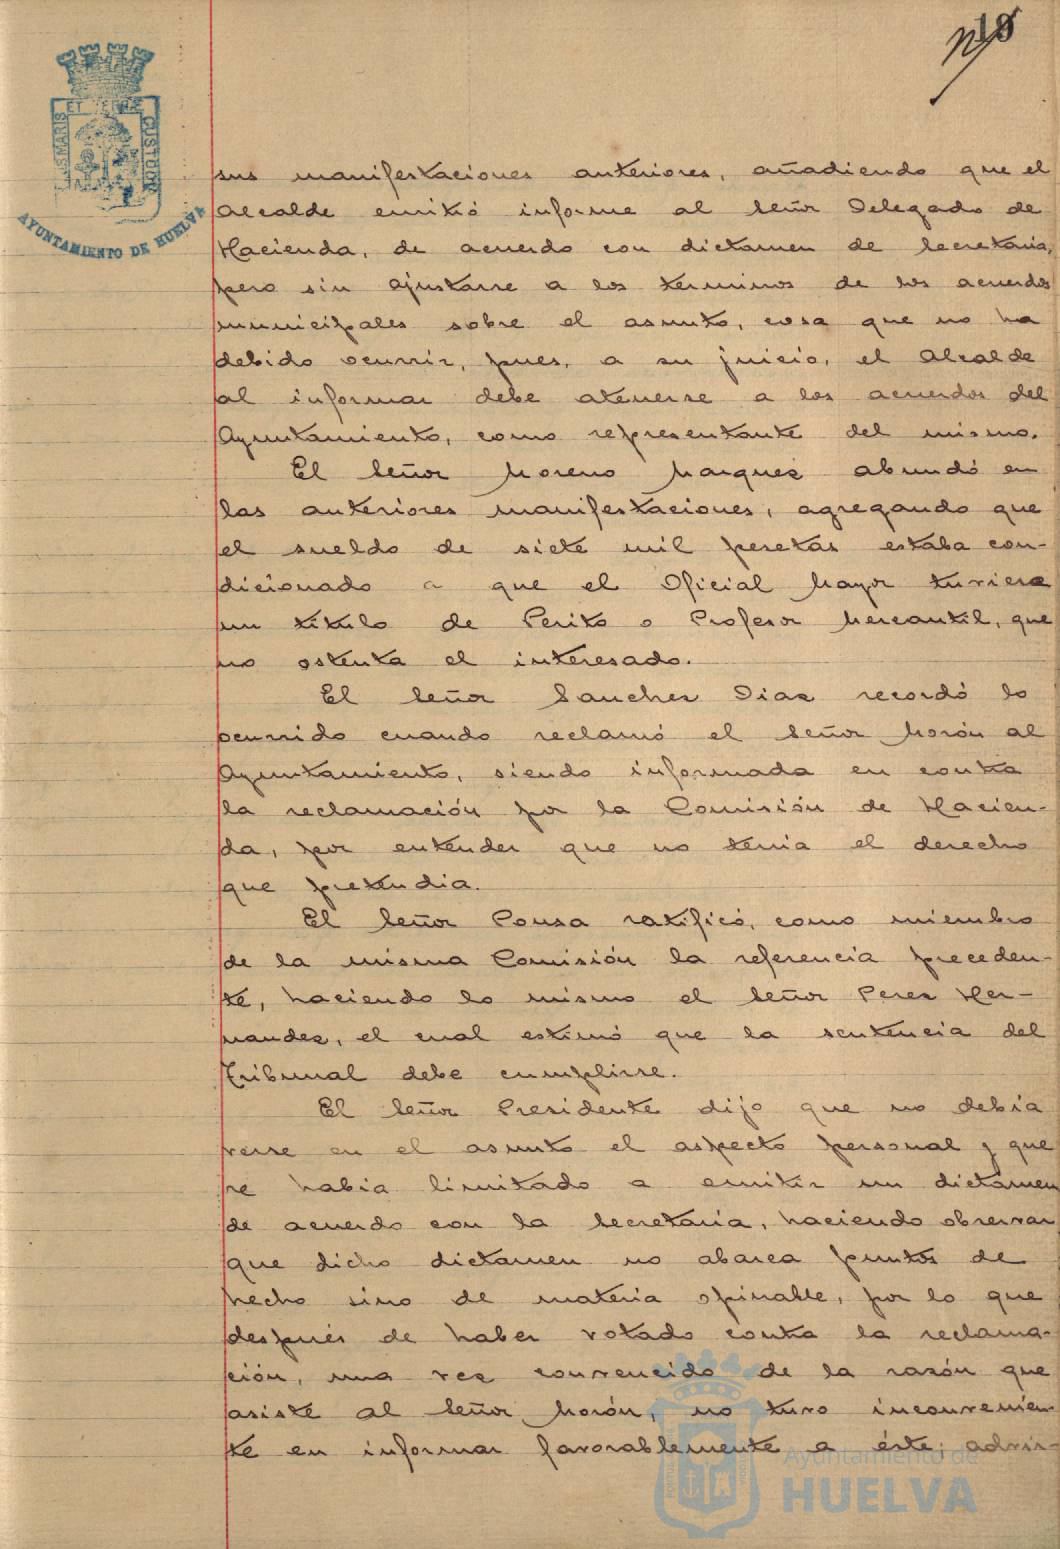 18
S MARIS ET TERRE CUSTODIA
AYUNTAMIENTO DE HUELVA
sus manifestaciones anteriores, añadiendo que el
Alcalde emitió informe al Señor Delegado de
Hacienda, de acuerdo con dictamen de Secretaria,
pero sin ajustarse a los terminos de los acuerdos
municipales sobre el asunto, cosa que no ha
debido ocurrir, pues, a su juicio, el Alcalde
al informar debe atenerse a los acuerdos del
Ayuntamiento, como representante del mismo.
El Señor Moreno Marquez abundó en
las anteriores manifestaciones, agregando que
el sueldo de siete mil pesetas estaba con-
dicionado a que el Oficial Mayor tuviera
un titulo de Perito o Profesor Mercantil, que
no ostenta el interesado.
El Señor Sanchez Diaz recordó lo
ocurrido cuando reclamó el Señor Morón al
Ayuntamiento, siendo informada en contra
la reclamación por la Comisión de Hacien-
da, por entender que no tenia el derecho
que pretendia.
El Señor Pousa ratificó, como miembro
de la misma Comisión la referencia preceden-
te, haciendo lo mismo el Señor Perez Her-
nandez, el cual estimó que la sentencia del
Tribunal debe cumplirse.
El Señor Presidente dijo que no debía
verse en el asunto el aspecto personal y que
se habia limitado a emitir un dictamen
de acuerdo con la Secretaría, haciendo observar
que dicho dictamen no abarca puntos de
hecho sino de materia opinable, por lo que
después de haber votado contra la reclama-
ción, una vez convencido de la razón que
asiste al Señor Morón, no tuvo inconvenien-
te en informar favorablemente a éste; advir-
Ayuntamiento de
HUELVA